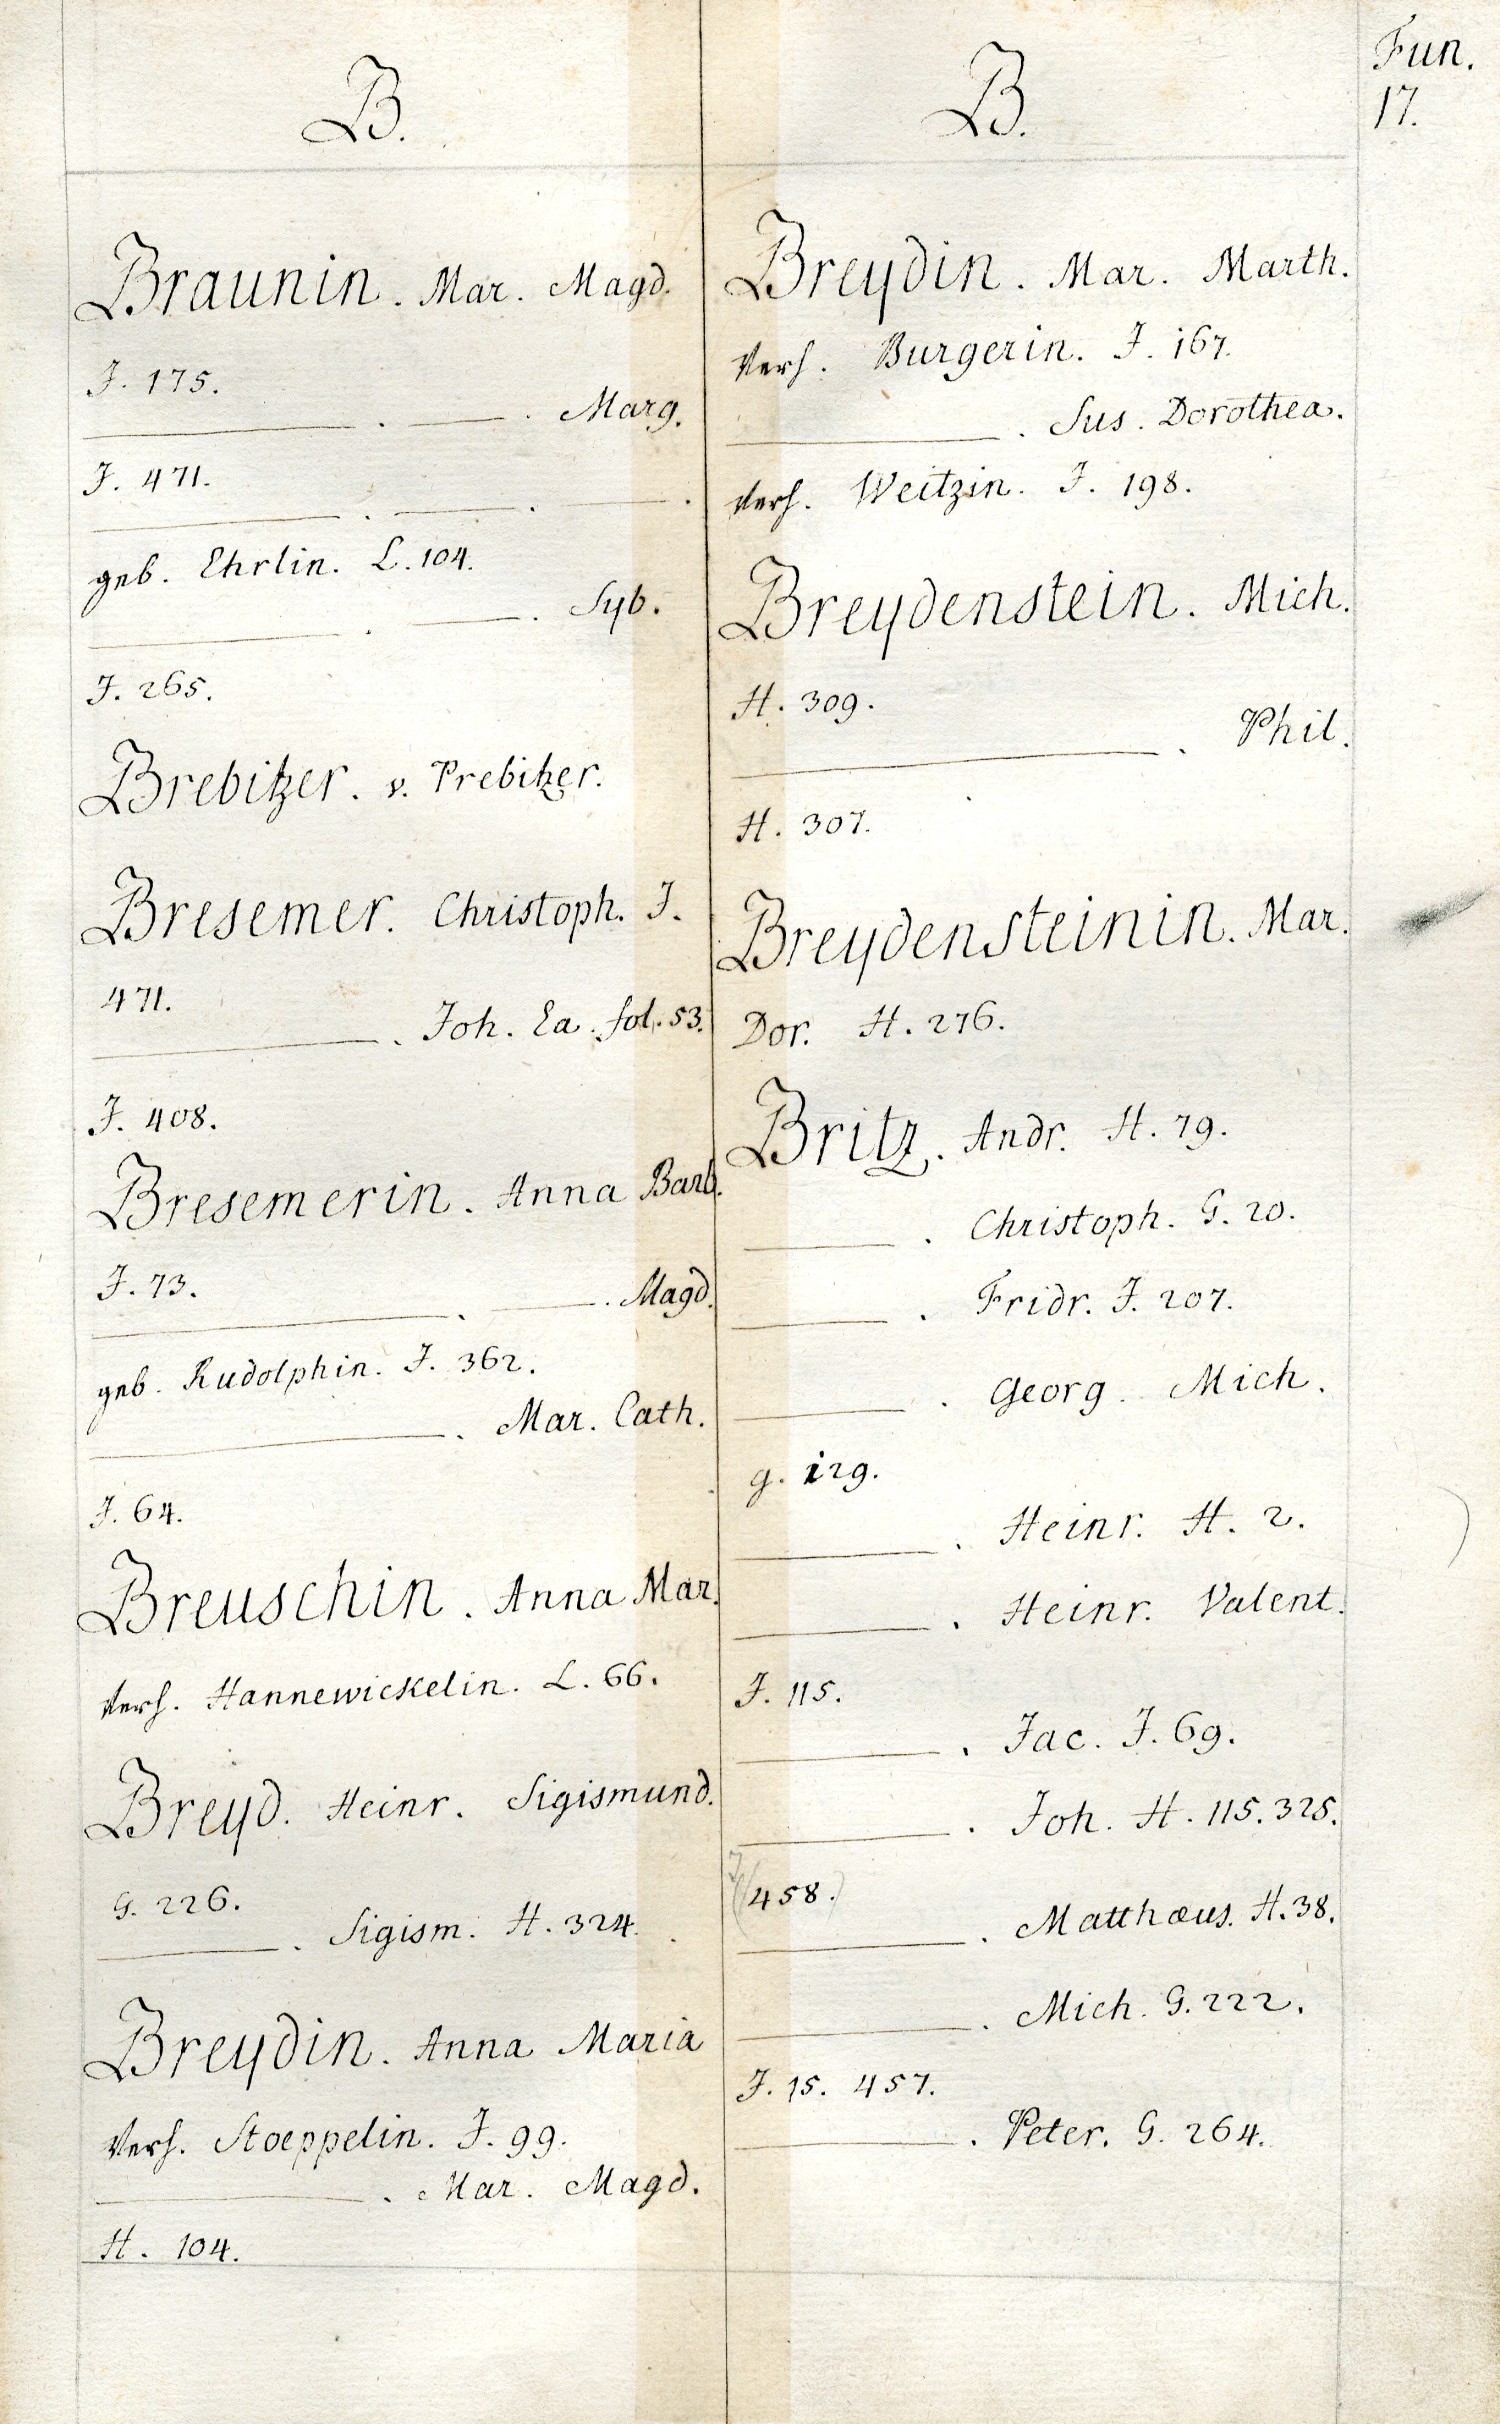 B.
Braunin. Mar. Magd.
J. 175.
———. ———. Marg.
J. 471.
———. ———. ———.
geb. Ehrlin. L. 104.
———. ———. Syb.
J. 265.
Brebitzer. v. Prebitzer.
Bresemer. Christoph. J.
471.
———. Joh. Ea. fol. 53.
J. 408.
Bresemerin. Anna Barb.
J. 73.
———. ———. Magd.
geb. Rudolphin. J. 362.
———. Mar. Cath.
J. 64.
Breuschin. Anna Mar.
Verh. Hannewickelin. L. 66.
Breyd. Heinr. Sigismund.
G. 226.
———. Sigism. H. 324.
Breydin. Anna Maria
Verh. Stoeppelin. J. 99.
———. Mar. Magd.
H. 104.
B.
Breydin. Mar. Marth.
Verh. Burgerin. J. 167.
———. Sus. Dorothea.
Verh. Weitzin. J. 198.
Breydenstein. Mich.
H. 309.
———. Phil.
H. 307.
Breydensteinin. Mar.
Dor. H. 276.
Britz. Andr. H. 79.
———. Christoph. G. 20.
———. Fridr. J. 207.
———. Georg. Mich.
g. 129.
———. Heinr. H. 2.
———. Heinr. Valent.
J. 115.
———. Jac. J. 69.
———. Joh. H. 115. 325.
J (458.)
———. Matthæus. H. 38.
———. Mich. G. 222.
J. 15. 457.
———. Peter. G. 264.
Fun.
17.